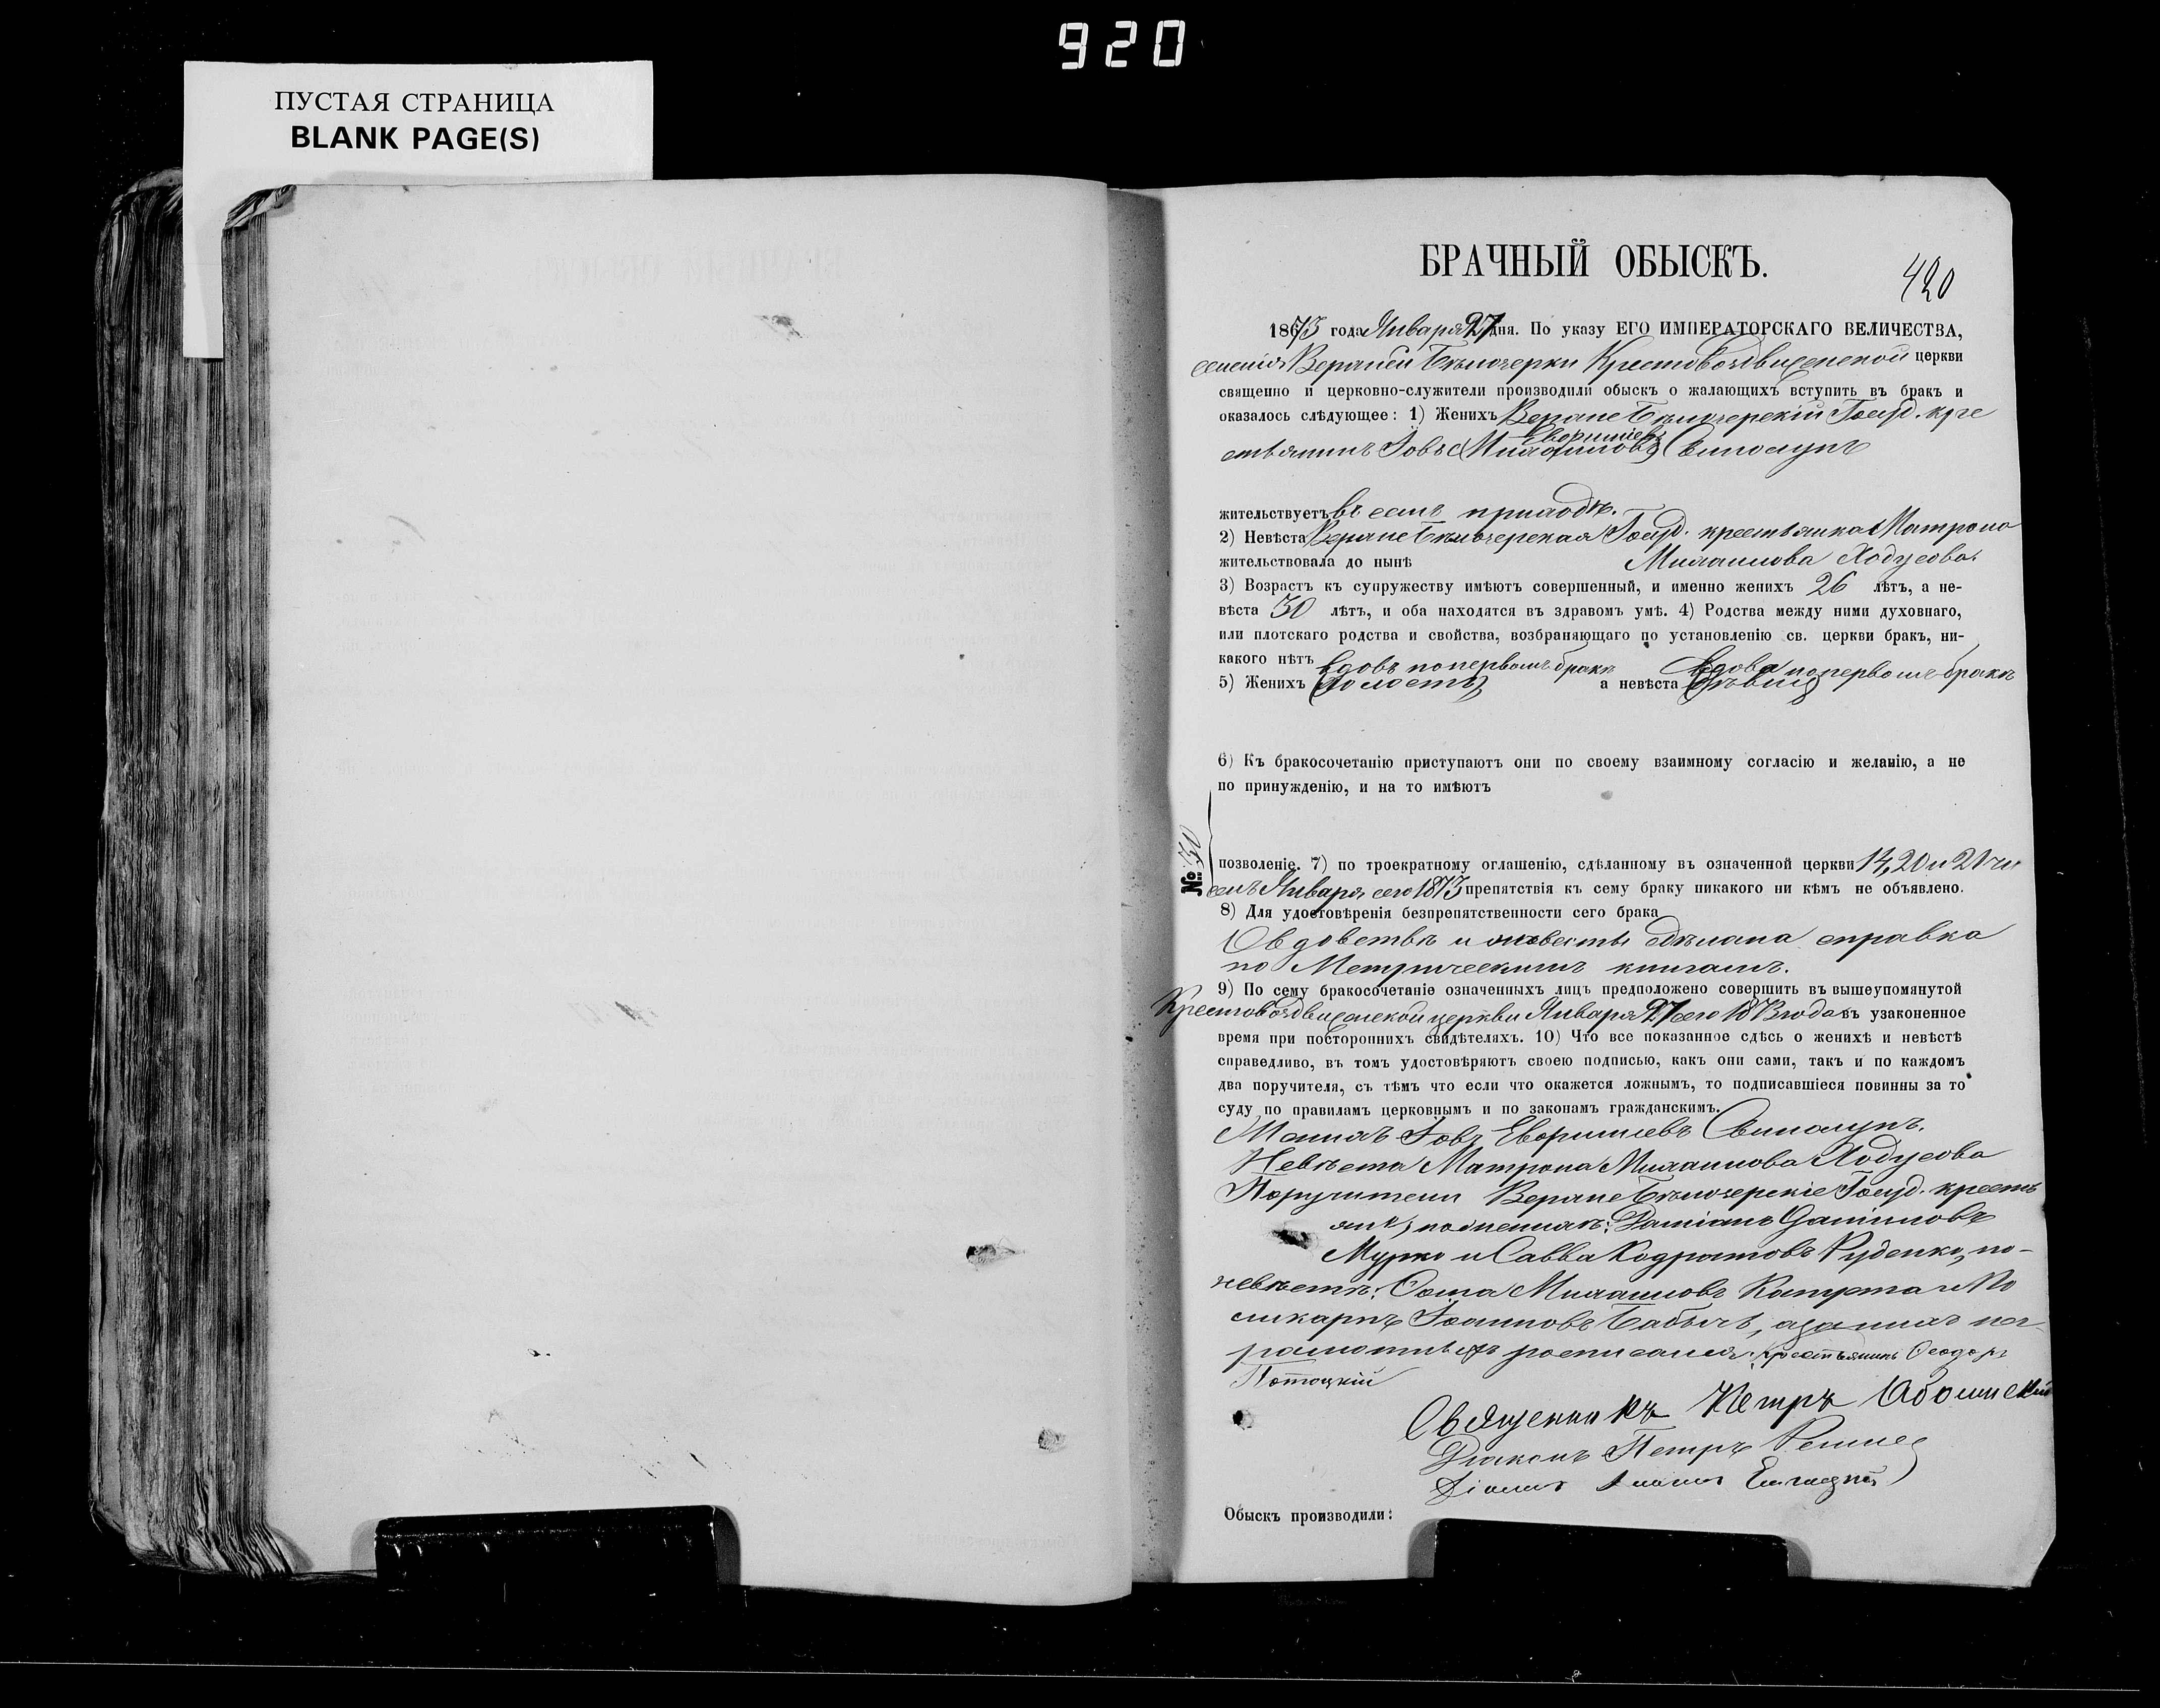 920
ПУСТАЯ СТРАНИЦА
BLANK PAGE(S)
БРАЧНЫЙ ОБЫСКЪ.
420
1873 года Января 27 дня. По указу ЕГО ИМПЕРАТОРСКАГО ВЕЛИЧЕСТВА,
селенія Верхней Бѣлозерки Крестовоздвиженской церкви
священно и церковно-служители производили обыскъ о жалающихъ вступить въ бракъ и
оказалось слѣдующее: 1) Женихъ Верхне Бѣлозерскій Госуд. кре
Евфиміевъ
стьянинъ Іовъ (Михаиловъ) Свинолупъ
жительствуетъ въ семъ приходѣ.
2) Невѣста Верхне Бѣлозерская Госуд. крестьянка Матрона
жительствовала до нынѣ Михаилова Ходусова.
3) Возрастъ къ супружеству имѣютъ совершенный, и именно женихъ 26 лѣтъ, а не-
вѣста 30 лѣтъ, и оба находятся въ здравомъ умѣ. 4) Родства между ними духовнаго,
или плотскаго родства и свойства, возбраняющаго по установленію св. церкви бракъ, ни-
какого нѣтъ
вдовъ по первомъ бракѣ вдова по первомъ бракѣ
5) Женихъ (холостъ) а невѣста (дѣвица)
6) Къ бракосочетанію приступаютъ они по своему взаимному согласію и желанію, а не
по принужденію, и на то имѣютъ
№
позволеніе. 7) по троекратному оглашенію, сдѣланному въ означенной церкви 14, 20 и 21 чи
слъ Января сего 1873 препятствія къ сему браку никакого ни кѣмъ не объявлено.
8) Для удостовѣренія безпрепятственности сего брака
О вдовствѣ и сдѣлана справка
по Метрическимъ книгамъ.
9) По сему бракосочетаніе означенныхъ лицъ предположено совершить въ вышеупомянутой
Крестовоздвиженской церкви Января 27 сего 1873 года въ узаконенное
время при постороннихъ свидѣтеляхъ. 10) Что все показанное сдѣсь о женихѣ и невѣстѣ
справедливо, въ томъ удостовѣряютъ своею подписью, какъ они сами, такъ и по каждомъ
два поручителя, съ тѣмъ что если что окажется ложнымъ, то подписавшіеся повинны за то
суду по правиламъ церковнымъ и по законамъ гражданскимъ.
Іовъ Свинолупъ.
Невѣста Матрона Михаилова Ходусова
Поручители Верхне Бѣлозерскіе Госуд. кресть
яне, по женихѣ: Даміанъ
Мурко и Савва Кодратовъ Руденко, по
невѣстѣ: Ѳома Михаиловъ Капуста и По
ликарпъ Іоанновъ Бабычъ, а за нихъ нег
рамотныхъ росписался Крестьянинъ Ѳеодоръ
Потоцкій
Священникъ Петръ
Діаконъ Петръ
Обыскъ производили: